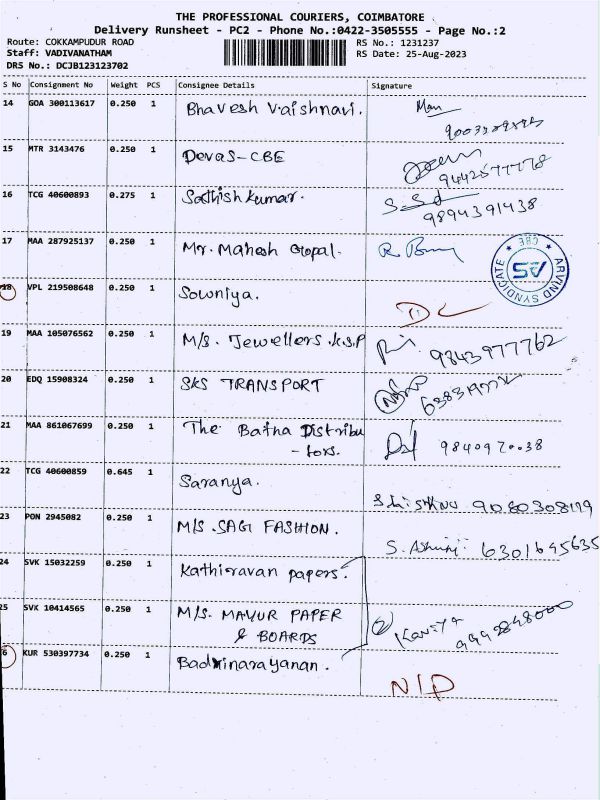 THE PROFESSIONAL COURIERS, COIMBATORE
Delivery Runsheet - PC2 - Phone No.:0422-3505555 - Page No.:2
Route: COKKAMPUDUR ROAD RS No.: 1231237
Staff: VADIVANATHAM RS Date: 25-Aug-2023
DRS No.: DCJB123123702
S No Consignment No Weight PCS Consignee Details Signature
14 GOA 300113617 0.250 1 Bhavesh Vaishnavi.
15 MTR 3143476 0.250 1 Devas-CBE
9442577778
16 TCG 40600893 0.275 1 Sathish kumar.
9894391438
17 MAA 287925137 0.250 1 Mr. Mahesh Gopal.
ARVIND SYNDICATE
★ CBE ★
AS
18 VPL 219508648 0.250 1 Sowniya.
DL
19 MAA 105076562 0.250 1 M/S. Jewellers .k.s.p
9843977762
20 EDQ 15908324 0.250 1 SKS TRANSPORT
21 MAA 861067699 0.250 1 The Batna Distribu
-tors. 9840970038
22 TCG 40600859 0.645 1 Saranya.
23 PON 2945082 0.250 1 M/S. SAGI FASHION.
6301645635
24 SVK 15032259 0.250 1 Kathiravan papers.
25 SVK 10414565 0.250 1 M/S. MAYUR PAPER
& BOARDS
Kaviya
26 KUR 530397734 0.250 1 Badrinarayanan.
N/D